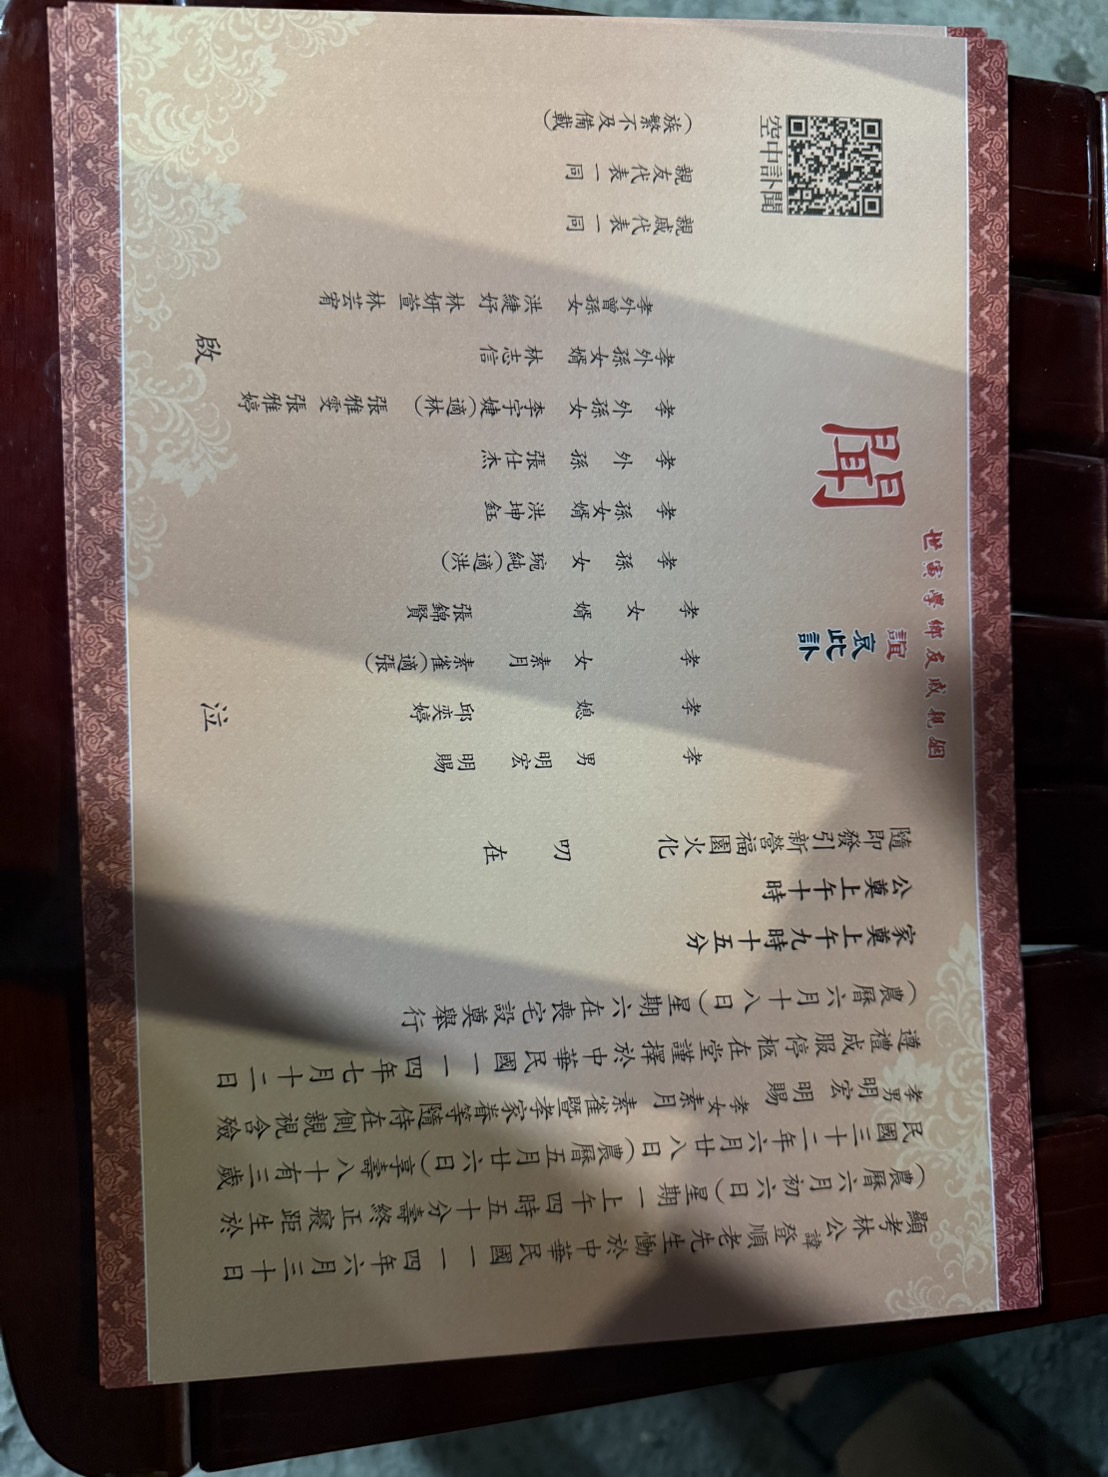 顯考林公諱登順老先生慟於中華民國一一四年六月三十日
(農曆六月初六日)星期一上午四時五十分壽終正寢距生於
民國三十二年六月廿八日(農曆五月廿六日)享壽八十有三歲
孝男明宏 明賜 孝女素月 素雀暨孝家眷等隨侍在側親視含殮
遵禮成服停柩在堂謹擇於中華民國一一四年七月十二日
(農曆六月十八日)星期六在喪宅設奠舉行
家奠上午九時十五分
公奠上午十時
隨即發引新營福園火化
叨在
姻親戚友鄉學寅世
誼
哀此訃
聞
孝男 明宏 明賜
孝媳 邱奕婷
孝女 素月 素雀(適張)
孝女婿 張錦賢
孝孫女 琬純(適洪)
孝孫女婿 洪坤鈺
孝外孫 張仕杰
孝外孫女 李宇婕(適林) 張雅雯 張雅婷
孝外孫女婿 林志信
孝外曾孫女 洪緁妤 林妍萱 林芸宥
泣啟
親戚代表一同
親友代表一同
(族繁不及備載)
空中訃聞